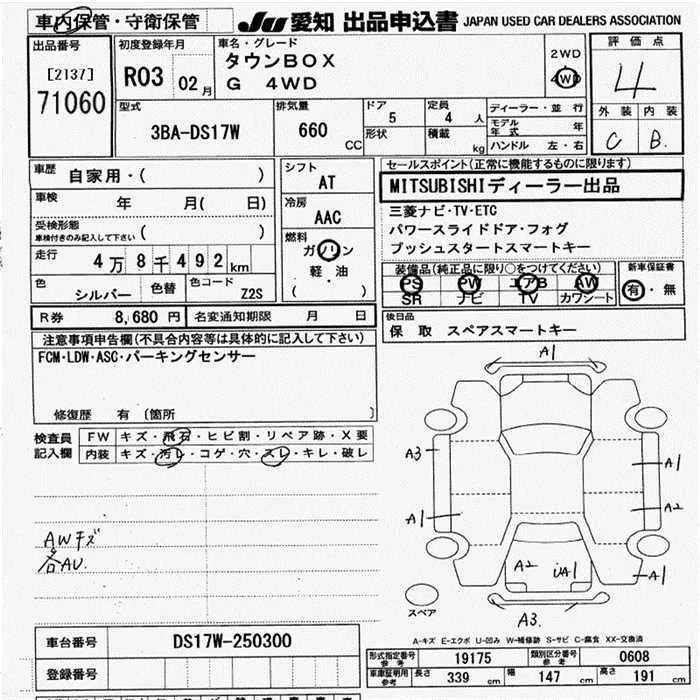 車内保管・守衛保管
JU 愛知 出品申込書 JAPAN USED CAR DEALERS ASSOCIATION
出品番号
[2137]
71060
初度登録年月
R03 02月
車名・グレード
タウンBOX
G 4WD
2WD
4WD
評価点
4
外装 内装
C B.
型式
3BA-DS17W
排気量
660 CC
ドア
5
形状
定員
4 人
積載
kg
ディーラー・並行
モデル年式 年
ハンドル 左・右
車歴 自家用・( )
車検 年 月( 日)
受検形態
車検付きのみ記入して下さい ( )
走行 4万8千492km
色 シルバー 色替 色コード Z2S
シフト
AT
冷房
AAC
燃料
ガソリン
軽・油
( )
セールスポイント(正常に機能するものに限ります)
MITSUBISHIディーラー出品
三菱ナビ・TV・ETC
パワースライドドア・フォグ
プッシュスタートスマートキー
装備品(純正品に限り○をつけてください)
PS PW エアB AW
SR ナビ TV カワシート
新車保証書
有・無
R券 8,680円 名変通知期限 月 日
後日品
保 取 スペアスマートキー
注意事項申告欄(不具合内容等は具体的に記入して下さい)
FCM・LDW・ASC・パーキングセンサー
修復歴 有 〔箇所 〕
検査員記入欄
FW キズ・飛石・ヒビ割・リペア跡・X要
内装 キズ・汚レ・コゲ・穴・スレ・キレ・破レ
AWキズ
各AU.
A1
A3
A1
A1
A2
A2
A1
A1
A3.
スペア
A-キズ E-エクボ U-凹み W-補修跡 S-サビ C-腐食 XX-交換済
車台番号 DS17W-250300
登録番号
形式指定番号 参考 19175 類別区分番号 参考 0608
車庫証明用 参考 長さ 339 cm 幅 147 cm 高さ 191 cm